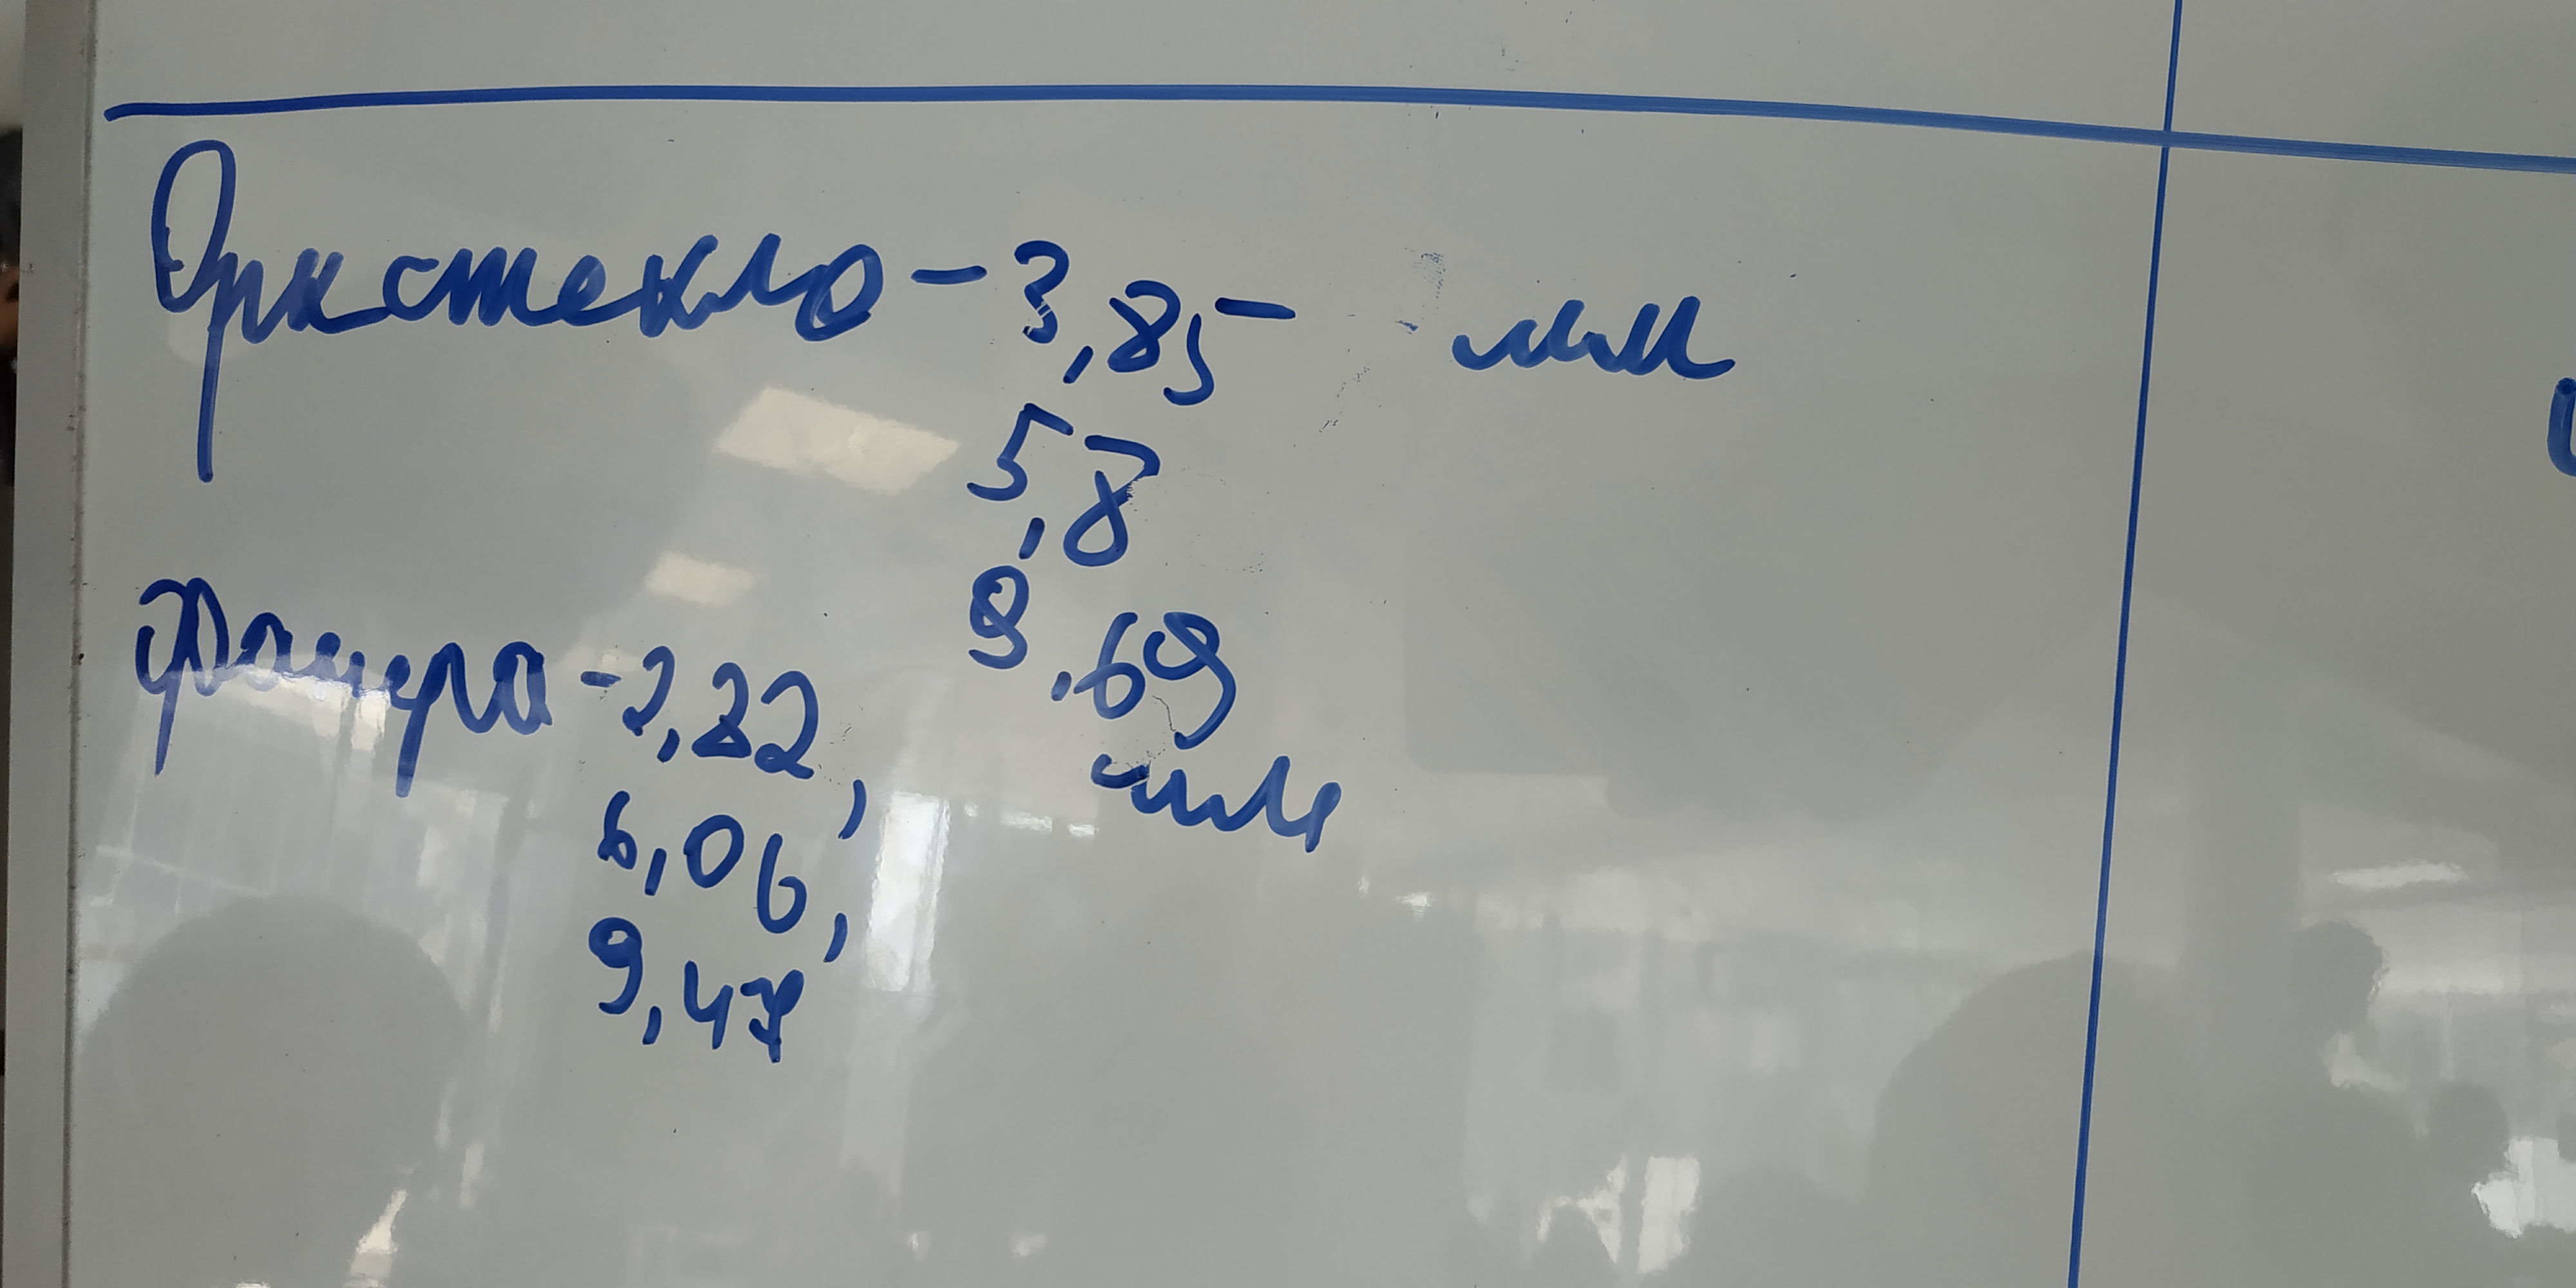 Оргстекло - 3,85 - мм
5,8
9,69
фанера - 2,82, мм
6,06,
9,47